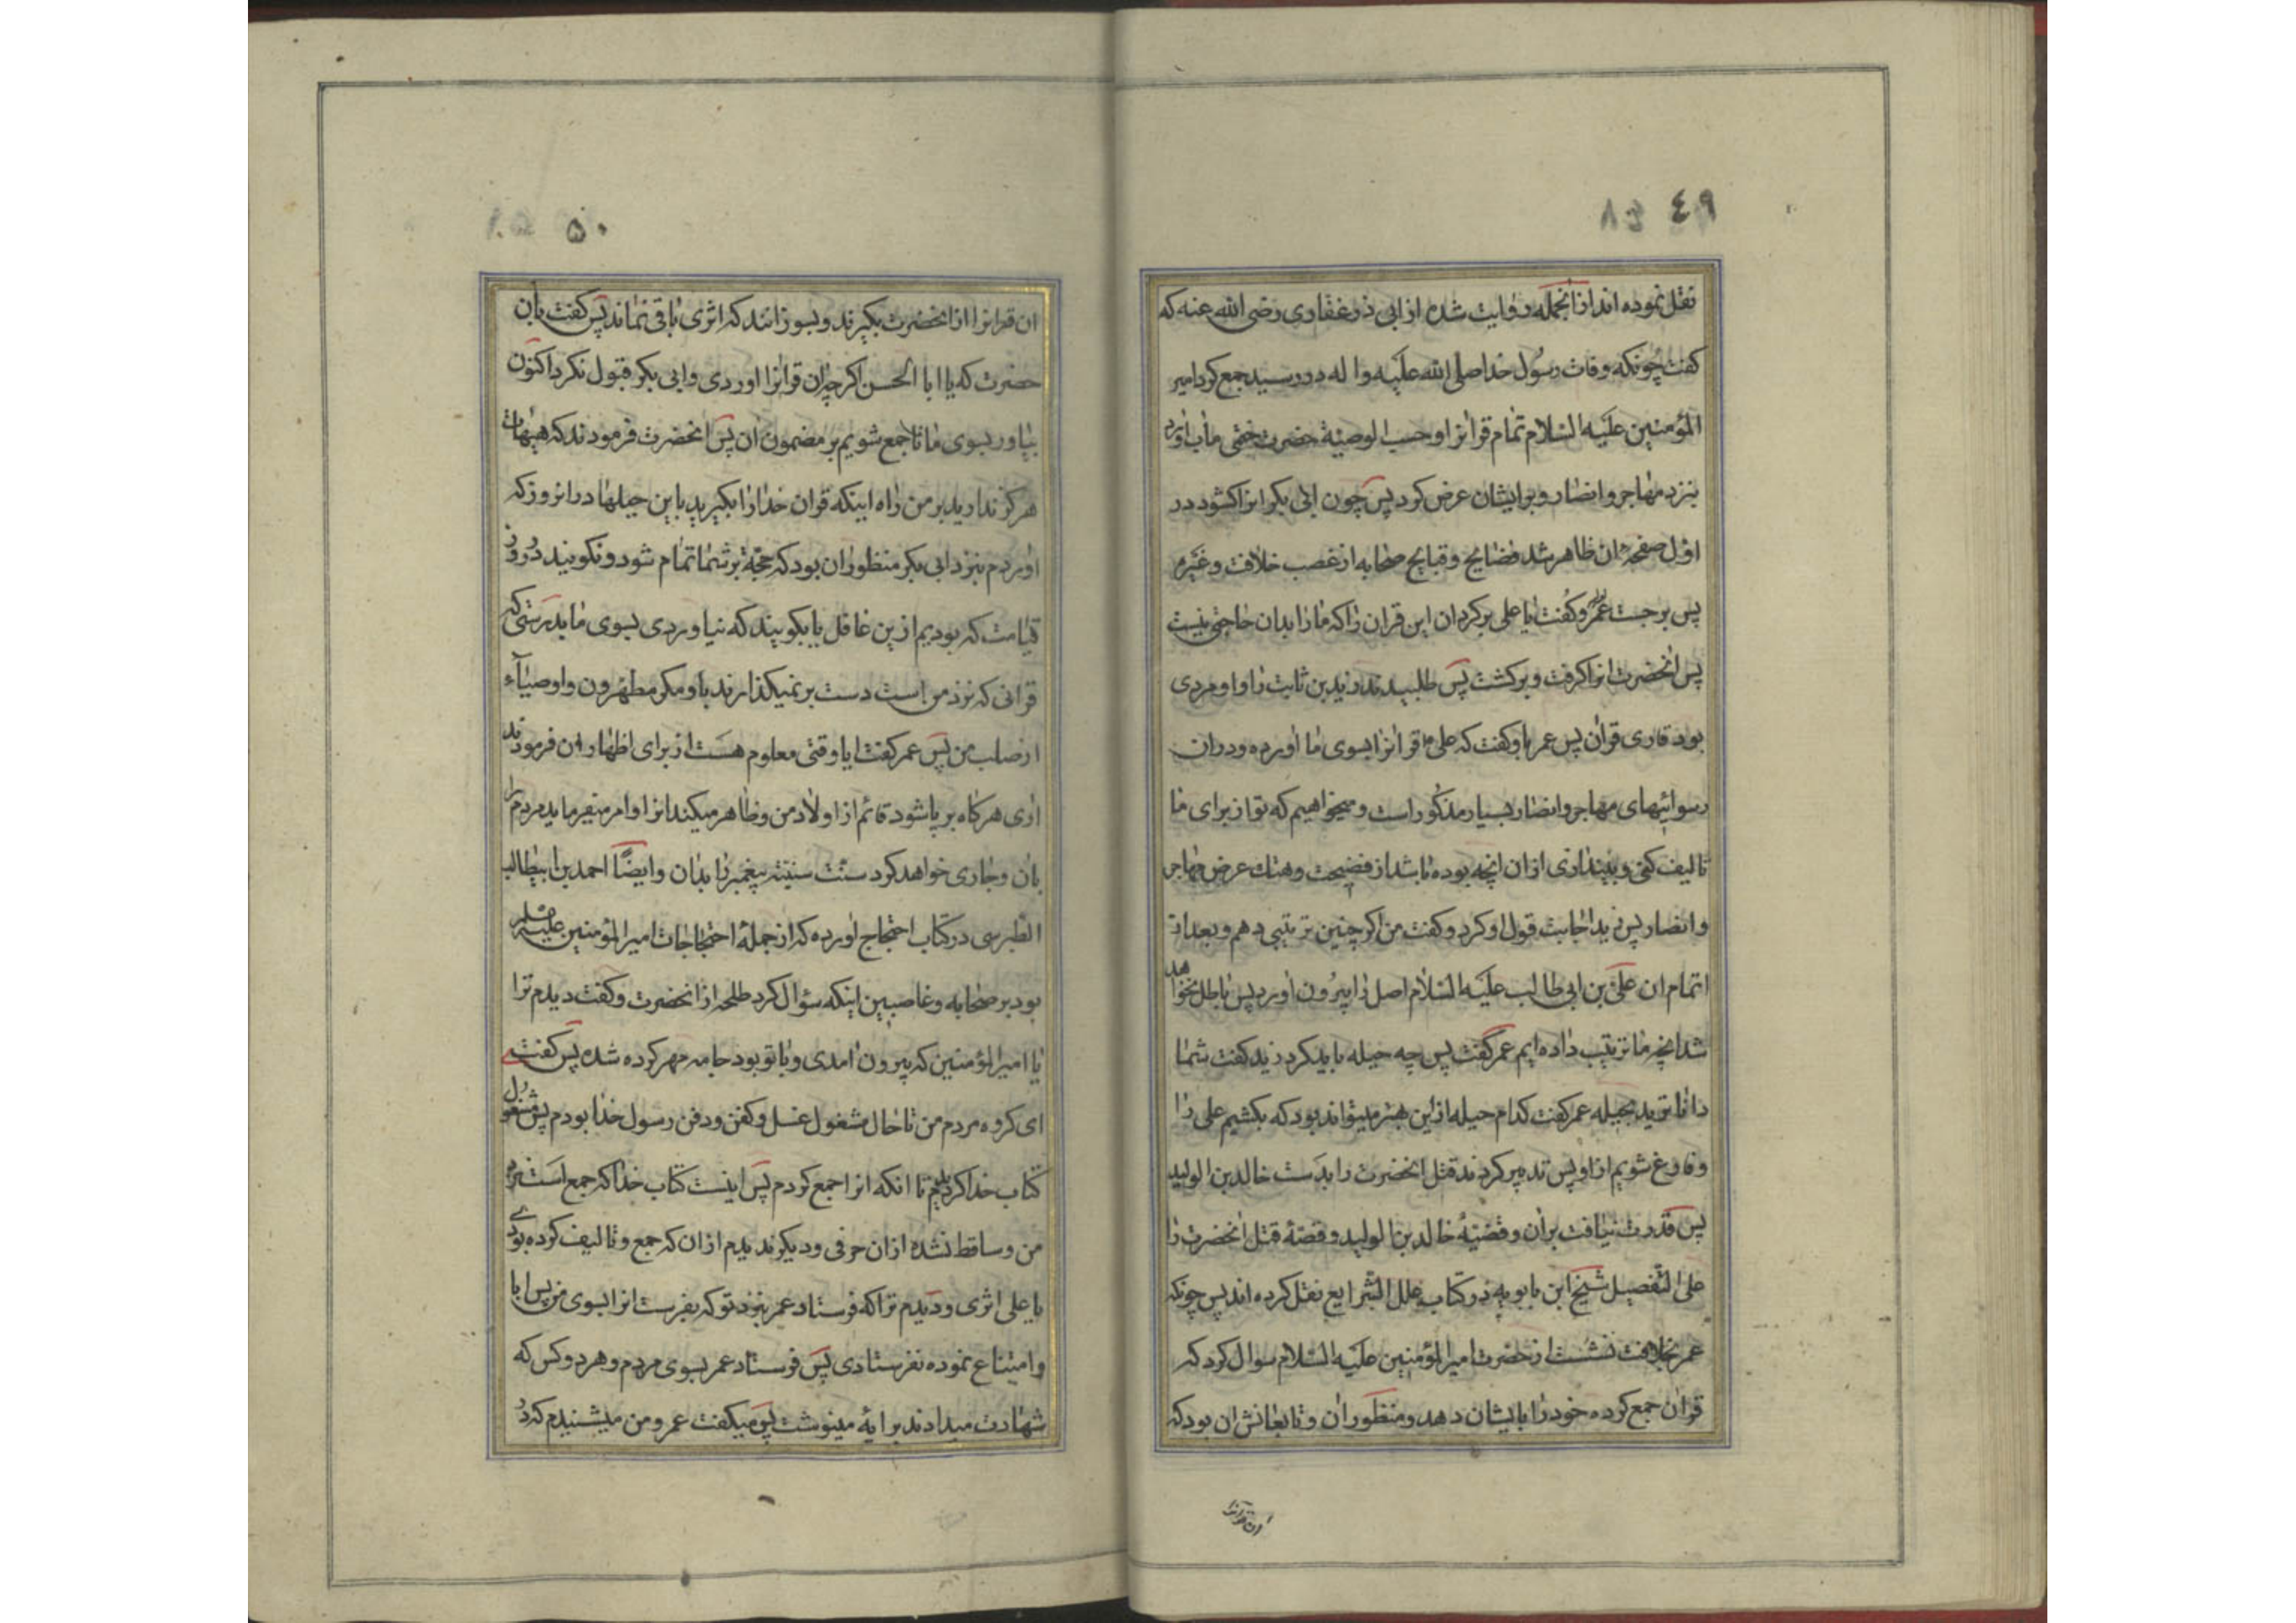 ٤٩ ٤٨
نقل نموده اند از انجمله روایت شده از ابی ذر غفاری رضی الله عنه که
کفت چونکه وفات رسول خدا صلی الله علیه و اله در رسید جمع کرد امیر
المؤمنین علیه السلام تمام قرانرا و حسب الوصیة حضرت ختمی ماب اورد
بنزد مهاجر و انصار و برایشان عرض کرد پس چون ابی بکر انرا کشود در
اول صفحه ان ظاهر شد فضایح و قبایح صحابه از غصب خلافت و غیره
پس برجست عمر و کفت یا علی برکردان این قران را که ما را بدان حاجتی نیست
پس انحضرت انرا کرفت و برکشت پس طلبیدند زید بن ثابت را و او مردی
بود قاری قران پس عمر باو کفت که علی قرانرا بسوی ما اورده و در ان
رسوائیهای مهاجر و انصار بسیار مذکور است و میخواهیم که تو از برای ما
تالیف کنی و بیندازی از ان انچه بوده باشد از فضیحت و هتك عرض مهاجر
و انصار پس زید اجابت قول او کرد و کفت من اکر چنین ترتیبی دهم و بعد از
اتمام ان علی بن ابی طالب علیه السلام اصل را بیرون اورد پس باطل نخواهد
شد انچه ما ترتیب داده ایم عمر کفت پس چه حیله باید کرد زید کفت شما
داناترید بحیله عمر کفت کدام حیله از این بهتر میتواند بود که بکشیم علی را
و فارغ شویم از او پس تدبیر کردند قتل انحضرت را بدست خالد بن الولید
پس قدرت نیافت بران و قضیهٔ خالد بن الولید و قصهٔ قتل انحضرت را
علی التفصیل شیخ ابن بابویه در کتاب علل الشرایع نقل کرده اند پس چونکه
عمر بخلافت نشست از حضرت امیرالمؤمنین علیه السلام سوال کرد که
قران جمع کرده خود را بایشان دهد و منظور ان و تابعانش ان بود که
ان قرانرا
٥٠
ان قرانرا از انحضرت بکیرند و بسوزانند که اثری باقی نماند پس کفت بان
حضرت که یا ابا الحسن اکر چه ان قرانرا اوردی و ابی بکر قبول نکرد اکنون
بیاور بسوی ما تا جمع شویم بر مضمون ان پس انحضرت فرمودند که هیهات
هرکز ندارید بر من راه اینکه قران خدا را بکیرید باین حیلها در انروز که
اوردم بنزد ابی بکر منظور ان بود که حجّة بر شما تمام شود و نکویند در روز
قیامت که بودیم از ین غافل یا بکویید که نیاوردی بسوی ما بدرستی که
قرانی که نزد من است دست بر نمیکذارند باو مکر مطهرون و اوصیاء
از صلب من پس عمر کفت ایا وقتی معلوم هست از برای اظهار ان فرمودند
اری هرکاه بر پا شود قائم از اولاد من و ظاهر میکند انرا و امر میفرماید مردم را
بان و جاری خواهد کرد سنت سنیّه پیغمبر را بدان و ایضًا احمد بن ابیطالب
الطبرسی در کتاب احتجاج اورده که از جملهٔ احتجاجات امیرالمؤمنین علیه السلام
بود بر صحابه و غاصبین اینکه سؤال کرد طلحه از انحضرت و کفت دیدم ترا
یا امیرالمؤمنین که بیرون امدی و با تو بود جامه مهر کرده شده پس کفتی
ای کروه مردم من تا حال مشغول غسل و کفن و دفن رسول خدا بودم پس مشغول
کتاب خدا کردیدم تا انکه انرا جمع کردم پس اینست کتاب خدا که جمع است نزد
من و ساقط نشده از ان حرفی و دیکر ندیدم از ان که جمع و تالیف کرده بودی
یا علی اثری و دیدم ترا که فرستاد عمر بنزد تو که بفرست انرا بسوی من پس ابا
و امتناع نموده نفرستادی پس فرستاد عمر بسوی مردم و هر دو کس که
شهادت میدادند بر ایهٔ مینوشت پس میکفت عمر و من میشنیدم که